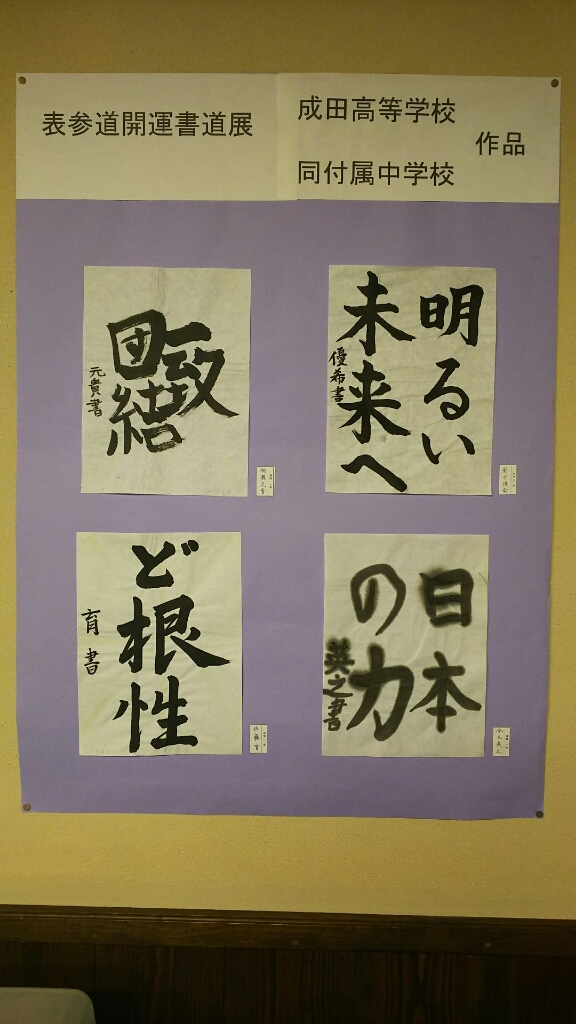 表参道開運書道展
成田高等学校
同付属中学校
作品
一致
団結
元貴書
明るい
未来へ
優希書
ど根性
育書
日本
の力
英之書